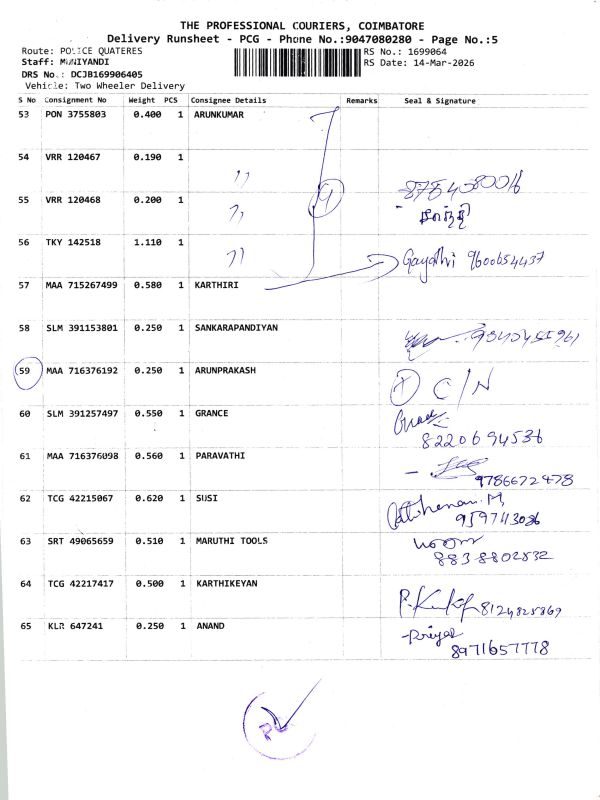 THE PROFESSIONAL COURIERS, COIMBATORE
Delivery Runsheet - PCG - Phone No.:9047080280 - Page No.:5
Route: POLICE QUATERES RS No.: 1699064
Staff: MUNIYANDI RS Date: 14-Mar-2026
DRS No.: DCJB169906405
Vehicle: Two Wheeler Delivery
S No Consignment No Weight PCS Consignee Details Remarks Seal & Signature
53 PON 3755803 0.400 1 ARUNKUMAR
54 VRR 120467 0.190 1 ,,
55 VRR 120468 0.200 1 ,, 4 8754580016
56 TKY 142518 1.110 1 ,, Gayathri 9600654437
57 MAA 715267499 0.580 1 KARTHIRI
58 SLM 391153801 0.250 1 SANKARAPANDIYAN
59 MAA 716376192 0.250 1 ARUNPRAKASH C/N
60 SLM 391257497 0.550 1 GRANCE 8220694536
61 MAA 716376098 0.560 1 PARAVATHI 9786672478
62 TCG 42215067 0.620 1 SUSI
63 SRT 49065659 0.510 1 MARUTHI TOOLS 8838802532
64 TCG 42217417 0.500 1 KARTHIKEYAN 8124825869
65 KLR 647241 0.250 1 ANAND Priya 8971657778